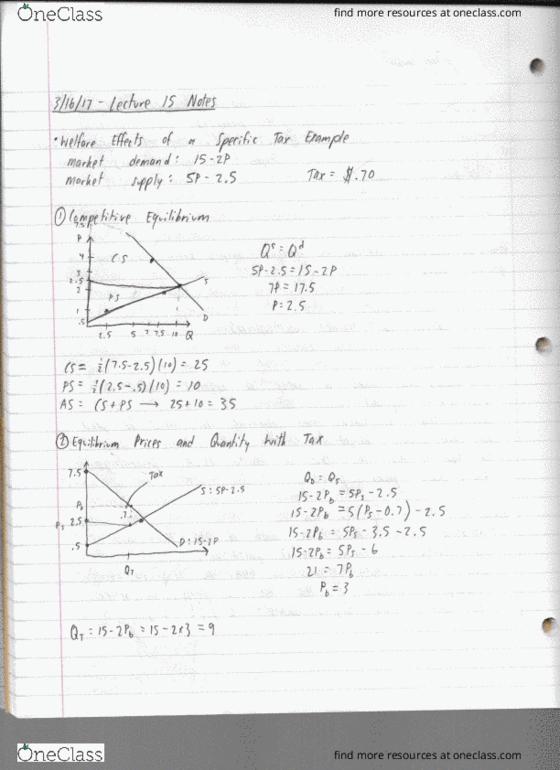 OneClass
find more resources at oneclass.com
3/16/17 - Lecture 15 Notes
• Welfare Effects of a Specific Tax Example
market demand: 15-2P
market supply: 5P-2.5 Tax = $.70
① Competitive Equilibrium
7.5
P
4
3
2.5
2
1
.5
CS
PS
S
D
2.5 5 7 7.5 10 Q
Qˢ = Qᵈ
5P-2.5 = 15-2P
7P = 17.5
P = 2.5
CS = ½(7.5-2.5)(10) = 25
PS = ½(2.5-.5)(10) = 10
AS = CS + PS → 25+10 = 35
② Equilibrium Prices and Quantity with Tax
7.5
Tax
S: 5P-2.5
Pb
.7
Ps 2.5
.5
D: 15-2P
QT
QD = QS
15-2Pb = 5Ps - 2.5
15-2Pb = 5(Pb-0.7) - 2.5
15-2Pb = 5Pb - 3.5 - 2.5
15-2Pb = 5Pb - 6
21 = 7Pb
Pb = 3
QT = 15-2Pb = 15-2x3 = 9
OneClass
find more resources at oneclass.com